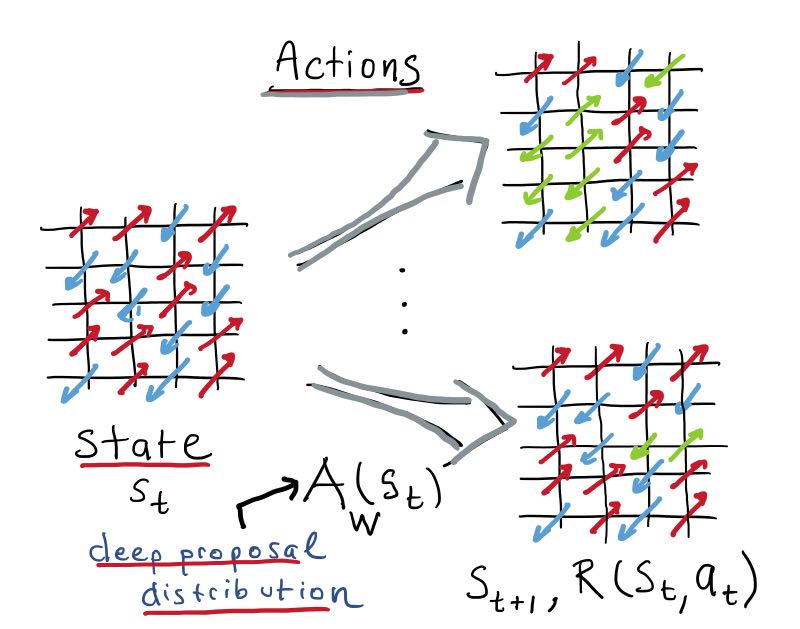 Actions
state
S_t
A_w(S_t)
deep proposal
distribution
S_{t+1}, R(S_t, a_t)